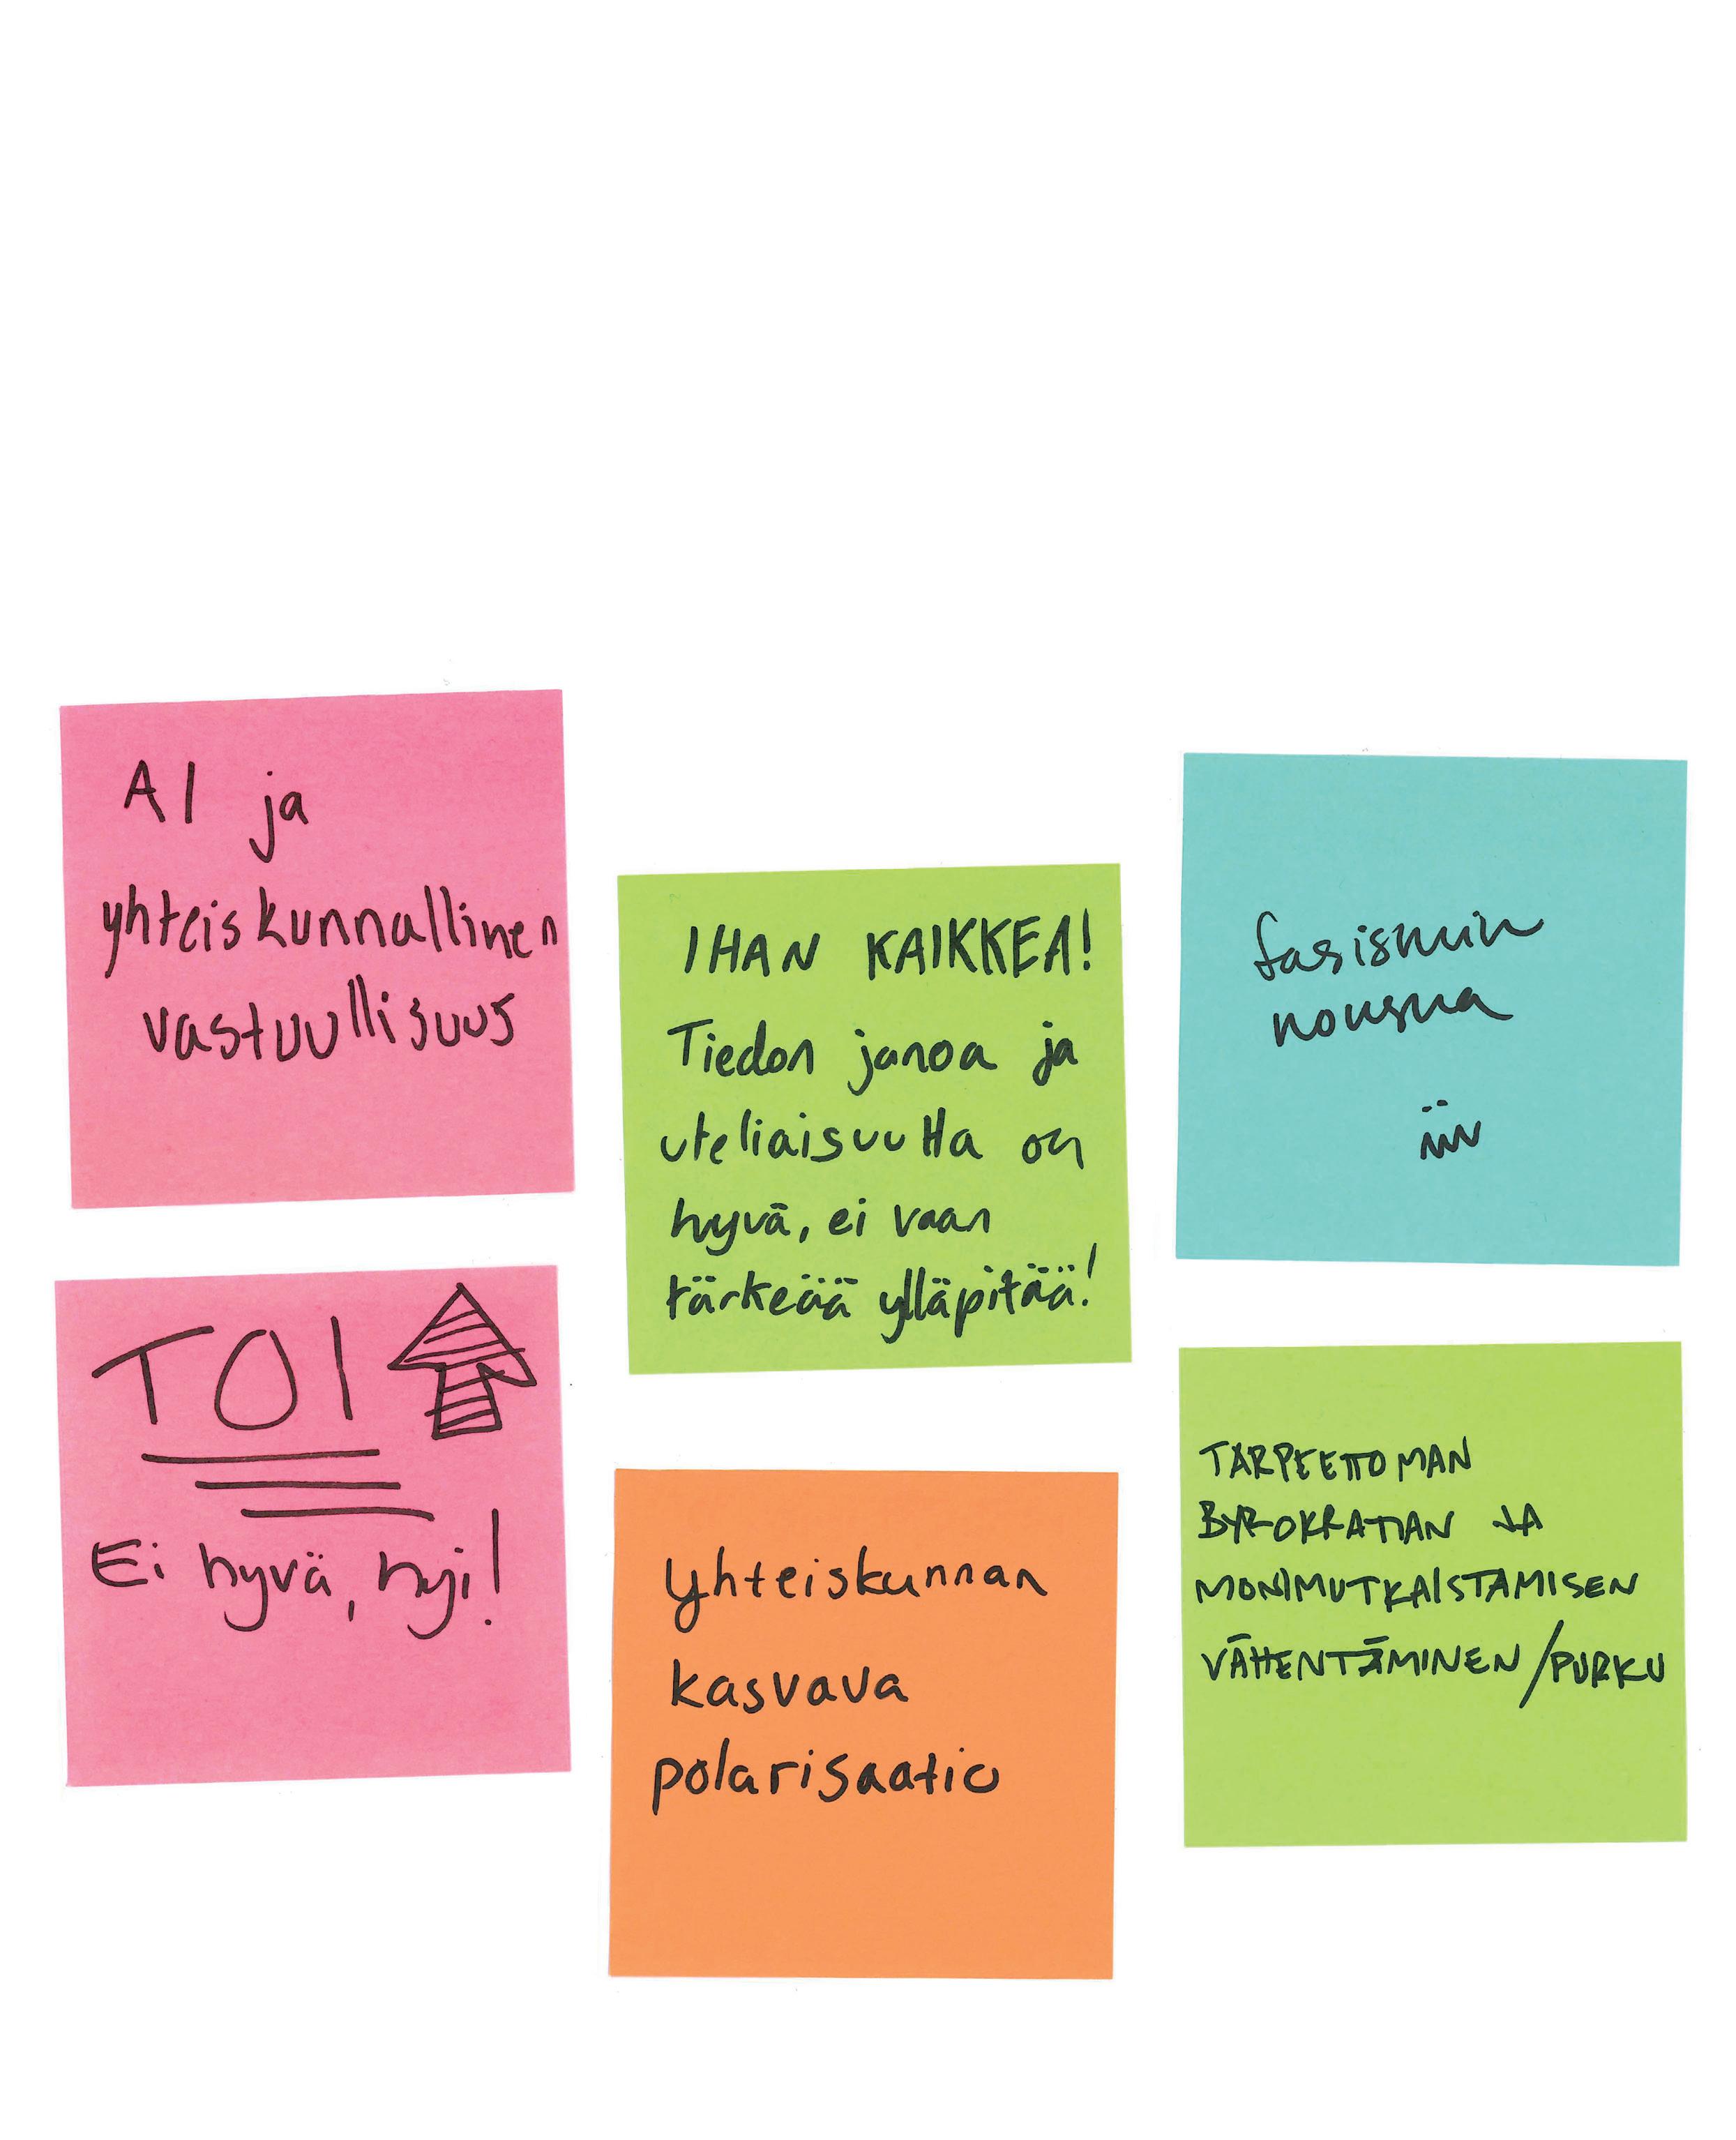 AI ja
yhteiskunnallinen
vastuullisuus
TOI
Ei hyvä, hyi!
IHAN KAIKKEA!
Tiedon janoa ja
uteliaisuutta on
hyvä, ei vaan
tärkeää ylläpitää!
Yhteiskunnan
kasvava
polarisaatio
fasismin
nousua
TARPEETTOMAN
BYROKRATIAN JA
MONIMUTKAISTAMISEN
VÄHENTÄMINEN/PURKU